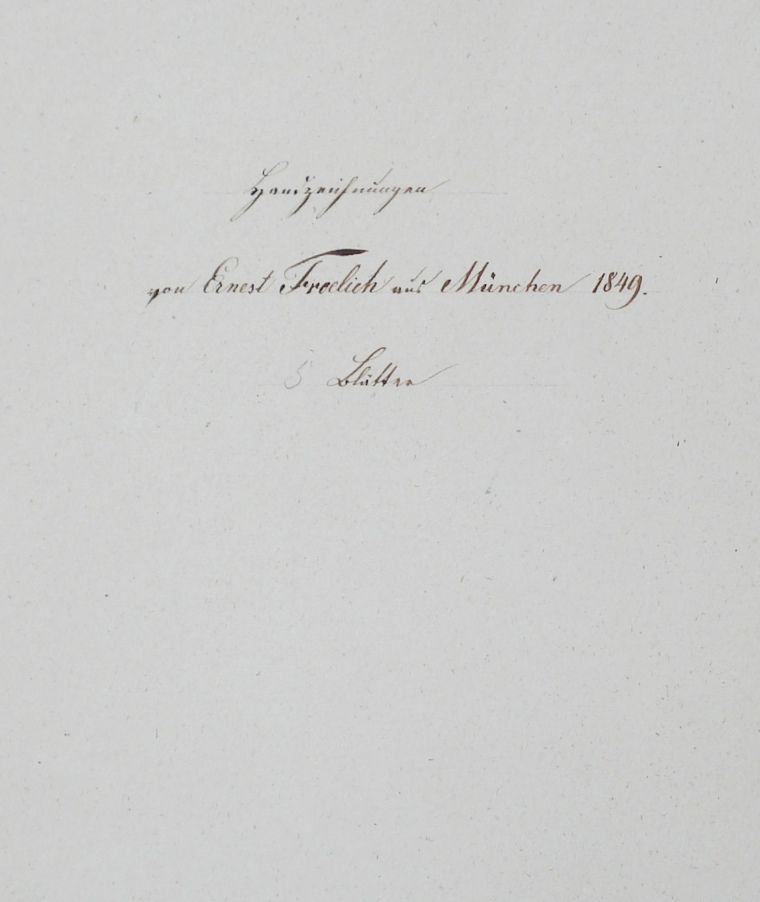 Handzeichnungen
von Ernest Froelich aus München 1849.
5 Blätter